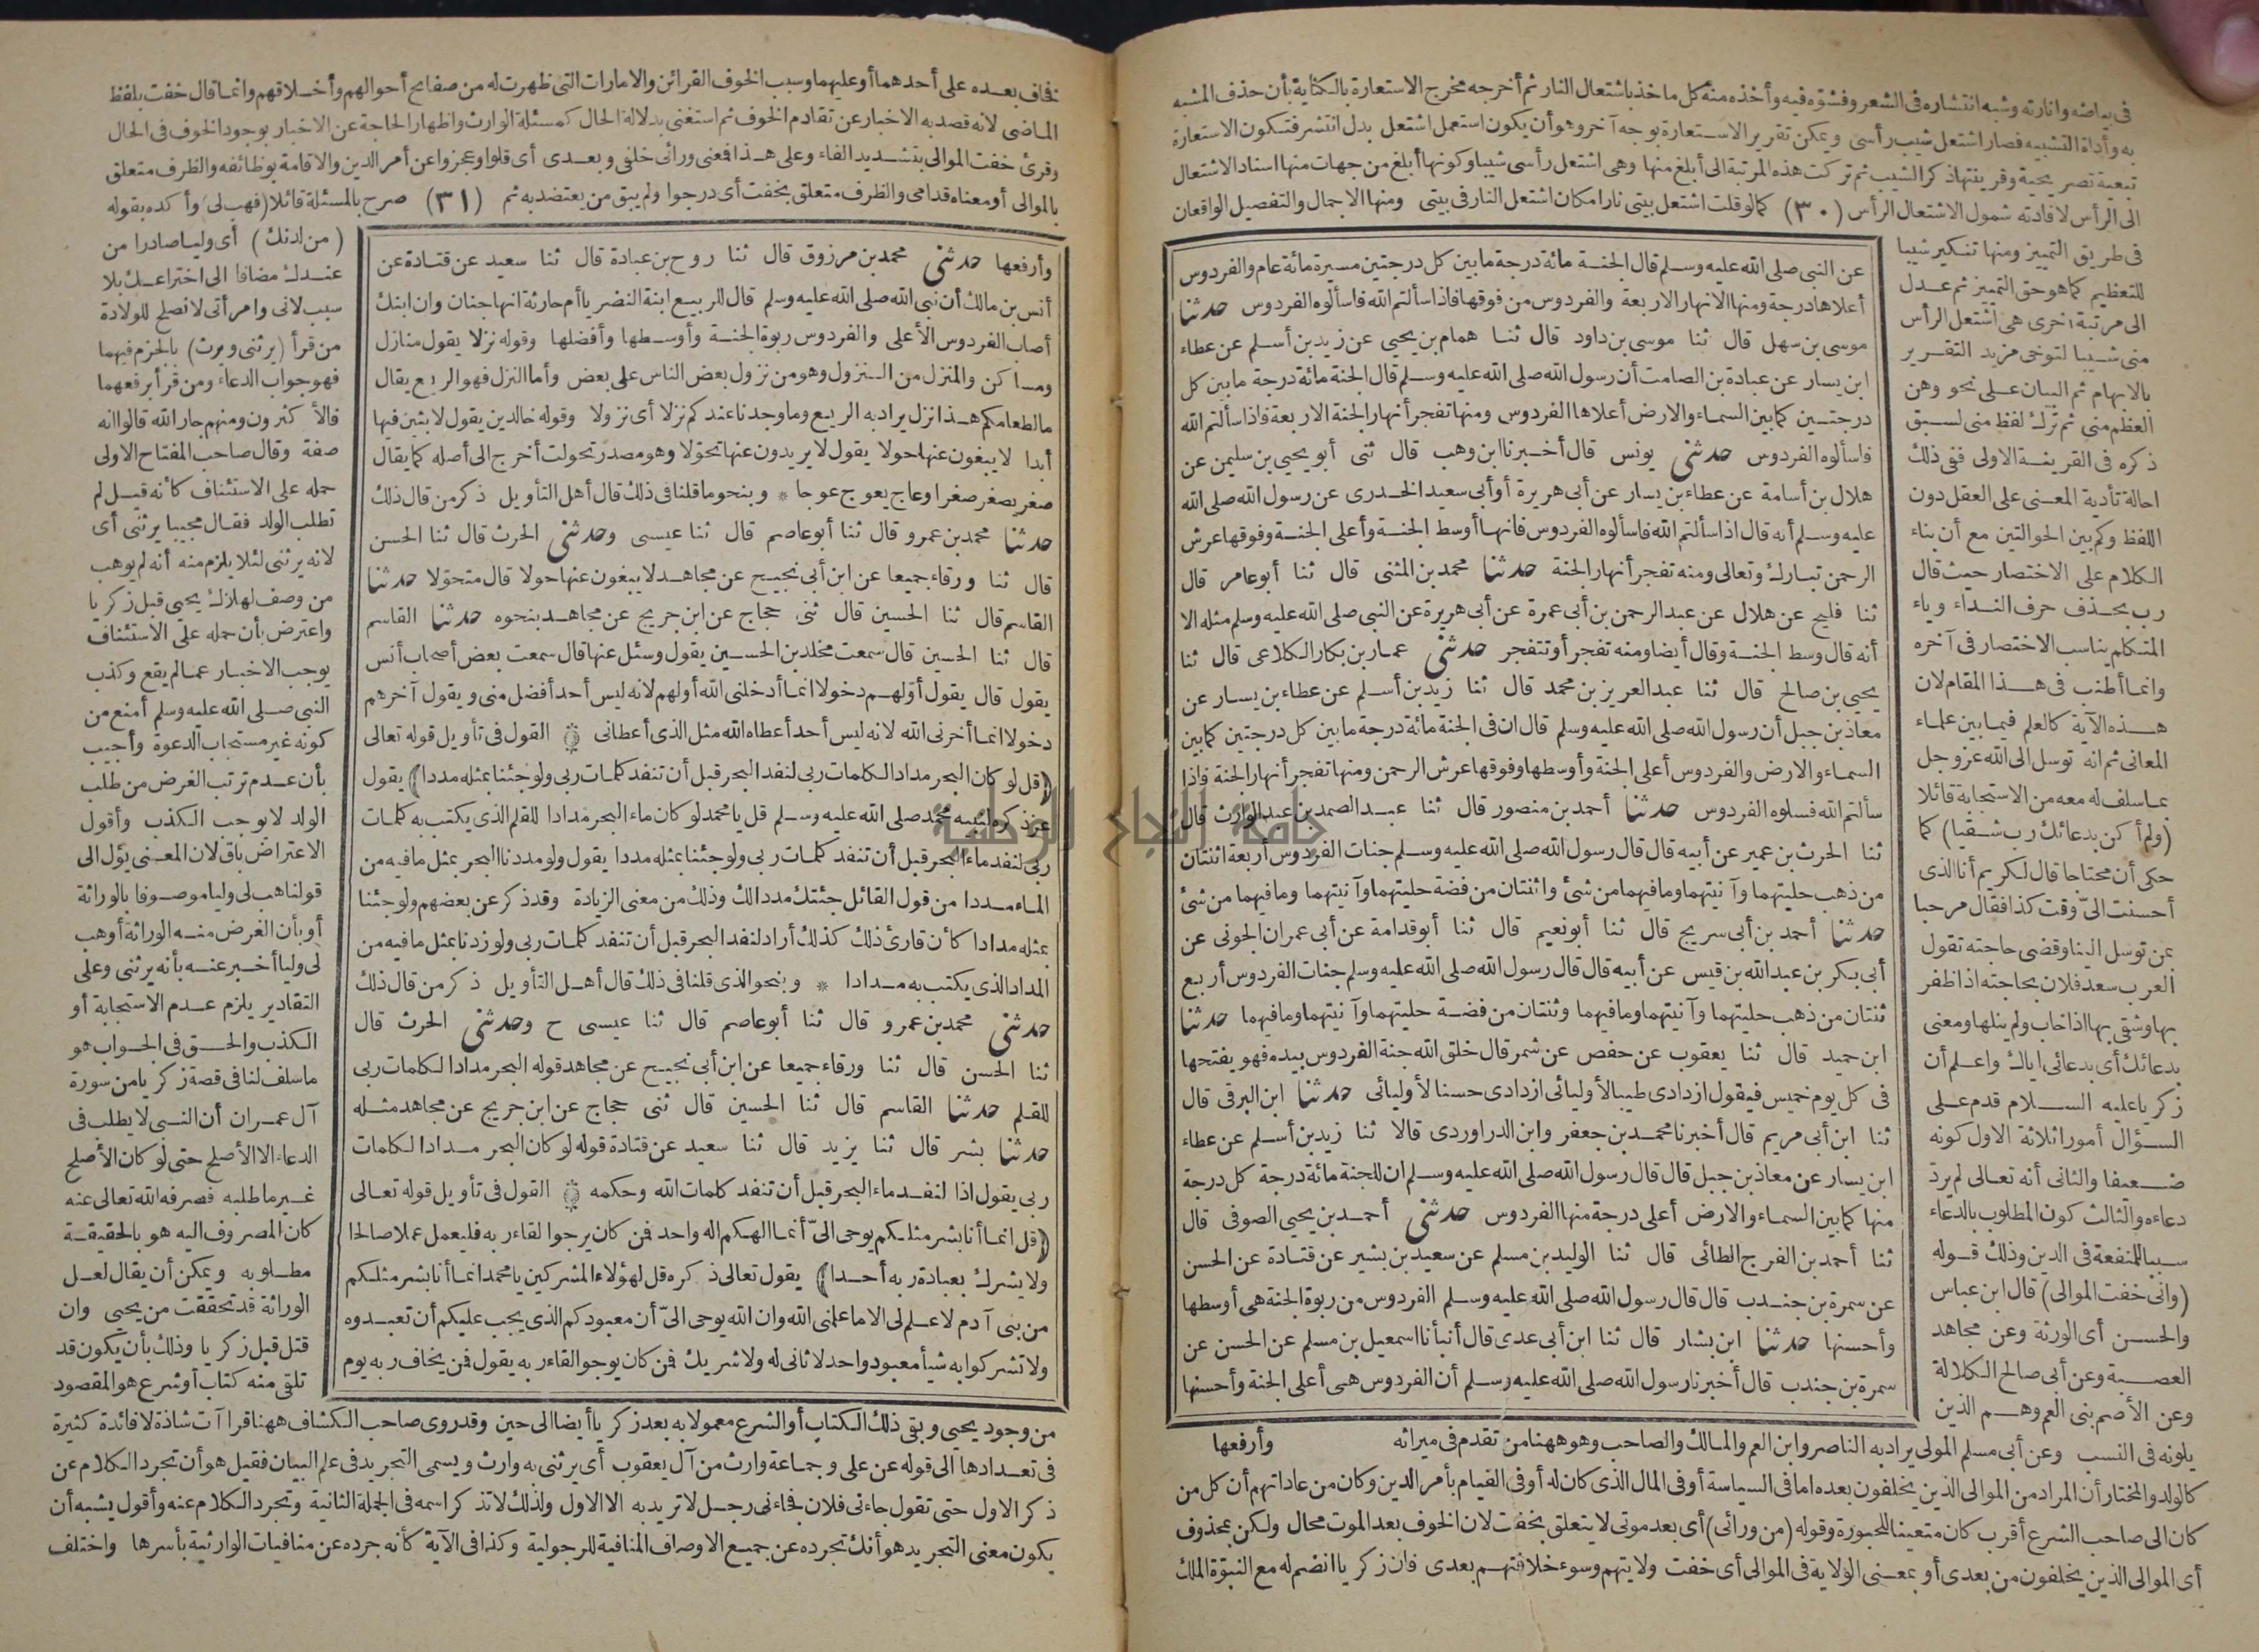 في بياضه وانارته وشبه انتشاره في الشعر وفشوّه فيه وأخذه منه كل مأخذ باشتعال النار ثم أخرجه مخرج الاستعارة بالكناية بأن حذف المشبه
به وأداة التشبيه فصار اشتعل شيب رأسي ويمكن تقرير الاستعارة بوجه آخر وهو أن يكون استعمل اشتعل بدل انتشر فتكون الاستعارة
تبعية تصريحية وقرينتها ذكر الشيب ثم تركت هذه المرتبة الى أبلغ منها وهي اشتعل رأسي شيبا وكونها أبلغ من جهات منها اسناد الاشتعال
الى الرأس لافادته شمول الاشتعال الرأس (٣٠) كما لو قلت اشتعل بيتي نارا مكان اشتعل النار في بيتي ومنها الاجمال والتفصيل الواقعان
في طريق التمييز ومنها تنكير شيبا
للتعظيم كما هو حق التمييز ثم عدل
الى مرتبة أخرى هي اشتعل الرأس
مني شيبا لتوخي مزيد التقرير
بالابهام ثم البيان على نحو وهن
العظم مني ثم ترك لفظ مني لسبق
ذكره في القرينة الاولى ففي ذلك
احالة تأدية المعنى على العقل دون
اللفظ وكم بين الحوالتين مع أن بناء
الكلام على الاختصار حيث قال
رب بحذف حرف النداء وياء
المتكلم يناسب الاختصار في آخره
وانما أطنب في هذا المقام لان
هذه الآية كالعلم فيما بين علماء
المعاني ثم انه توسل الى الله عز وجل
بما سلف له معه من الاستجابة قائلا
(ولم أكن بدعائك رب شقيا) كما
حكى أن محتاجا قال لكريم أنا الذي
أحسنت اليّ وقت كذا فقال مرحبا
بمن توسل الينا وقضى حاجته تقول
العرب سعد فلان بحاجته اذا ظفر
بها وشقي بها اذا خاب ولم ينلها ومعنى
بدعائك أي بدعائي اياك واعلم أن
زكريا عليه السلام قدم على
السؤال أمورا ثلاثة الاول كونه
ضعيفا والثاني أنه تعالى لم يرد
دعاءه والثالث كون المطلوب بالدعاء
سببا للمنفعة في الدين وذلك قوله
(واني خفت الموالي) قال ابن عباس
والحسن أي الورثة وعن مجاهد
العصبة وعن أبي صالح الكلالة
وعن الأصم بني العم وهم الذين
عن النبي صلى الله عليه وسلم قال الجنة مائة درجة ما بين كل درجتين مسيرة مائة عام والفردوس
أعلاها درجة ومنها الانهار الاربعة والفردوس من فوقها فاذا سألتم الله فاسألوه الفردوس حدثنا
موسى بن سهل قال ثنا موسى بن داود قال ثنا همام بن يحيى عن زيد بن أسلم عن عطاء
ابن يسار عن عبادة بن الصامت أن رسول الله صلى الله عليه وسلم قال الجنة مائة درجة ما بين كل
درجتين كما بين السماء والارض أعلاها الفردوس ومنها تفجر أنهار الجنة الاربعة فاذا سألتم الله
فاسألوه الفردوس حدثني يونس قال أخبرنا ابن وهب قال ثني أبو يحيى بن سليمن عن
هلال بن أسامة عن عطاء بن يسار عن أبي هريرة أو أبي سعيد الخدري عن رسول الله صلى الله
عليه وسلم أنه قال اذا سألتم الله فاسألوه الفردوس فانها أوسط الجنة وأعلى الجنة وفوقها عرش
الرحمن تبارك وتعالى ومنه تفجر أنهار الجنة حدثنا محمد بن المثنى قال ثنا أبو عامر قال
ثنا فليح عن هلال عن عبد الرحمن بن أبي عمرة عن أبي هريرة عن النبي صلى الله عليه وسلم مثله الا
أنه قال وسط الجنة وقال أيضا ومنه تفجر أو تتفجر حدثني عمار بن بكار الكلاعي قال ثنا
يحيى بن صالح قال ثنا عبد العزيز بن محمد قال ثنا زيد بن أسلم عن عطاء بن يسار عن
معاذ بن جبل أن رسول الله صلى الله عليه وسلم قال ان في الجنة مائة درجة ما بين كل درجتين كما بين
السماء والارض والفردوس أعلى الجنة وأوسطها وفوقها عرش الرحمن ومنها تفجر أنهار الجنة فاذا
سألتم الله فسلوه الفردوس حدثنا أحمد بن منصور قال ثنا عبد الصمد بن عبد الوارث قال
ثنا الحرث بن عمير عن أبيه قال قال رسول الله صلى الله عليه وسلم جنات الفردوس أربعة اثنتان
من ذهب حليتهما وآنيتهما وما فيهما من شئ واثنتان من فضة حليتهما وآنيتهما وما فيهما من شئ
حدثنا أحمد بن أبي سريج قال ثنا أبو نعيم قال ثنا أبو قدامة عن أبي عمران الجوني عن
أبي بكر بن عبد الله بن قيس عن أبيه قال قال رسول الله صلى الله عليه وسلم جنات الفردوس أربع
ثنتان من ذهب حليتهما وآنيتهما وما فيهما وثنتان من فضة حليتهما وآنيتهما وما فيهما حدثنا
ابن حميد قال ثنا يعقوب عن حفص عن شمر قال خلق الله جنة الفردوس بيده فهو يفتحها
في كل يوم خميس فيقول ازدادي طيبا لأوليائي ازدادي حسنا لأوليائي حدثنا ابن البرقي قال
ثنا ابن أبي مريم قال أخبرنا محمد بن جعفر وابن الدراوردي قالا ثنا زيد بن أسلم عن عطاء
ابن يسار عن معاذ بن جبل قال قال رسول الله صلى الله عليه وسلم ان للجنة مائة درجة كل درجة
منها كما بين السماء والارض أعلى درجة منها الفردوس حدثني أحمد بن يحيى الصوفي قال
ثنا أحمد بن الفرج الطائي قال ثنا الوليد بن مسلم عن سعيد بن بشير عن قتادة عن الحسن
عن سمرة بن جندب قال قال رسول الله صلى الله عليه وسلم الفردوس من ربوة الجنة هي أوسطها
وأحسنها حدثنا ابن بشار قال ثنا ابن أبي عدي قال أنبأنا اسمعيل بن مسلم عن الحسن عن
سمرة بن جندب قال أخبرنا رسول الله صلى الله عليه وسلم أن الفردوس هي أعلى الجنة وأحسنها
يلونه في النسب وعن أبي مسلم المولى يراد به الناصر وابن العم والمالك والصاحب وهو ههنا من تقدم في ميراثه وأرفعها
كالولد والمختار أن المراد من الموالي الذين يخلفون بعده اما في السياسة أو في المال الذي كان له أو في القيام بأمر الدين وكان من عاداتهم أن كل من
كان الى صاحب الشرع أقرب كان متعينا للحبورة وقوله (من ورائي) أي بعد موتي لا يتعلق بخفت لان الخوف بعد الموت محال ولكن بمحذوف
أي الموالي الذين يخلفون من بعدي أو بمعنى الولاية في الموالي أي خفت ولايتهم وسوء خلافتهم بعدي فان زكريا انضم له مع النبوّة الملك
فخاف بعده على أحدهما أو عليهما وسبب الخوف القرائن والامارات التي ظهرت له من صفائح أحوالهم وأخلاقهم وانما قال خفت بلفظ
الماضي لانه قصد به الاخبار عن تقادم الخوف ثم استغنى بدلالة الحال كمسئلة الوارث واظهار الحاجة عن الاخبار بوجود الخوف في الحال
وقرئ خفت الموالي بتشديد الفاء وعلى هذا فمعنى ورائي خلفي وبعدي أي قلوا وعجزوا عن أمر الدين والاقامة بوظائفه والظرف متعلق
بالموالي أو معناه قدامي والظرف متعلق بخفت أي درجوا ولم يبق من يعتضد به ثم (٣١) صرح بالمسئلة قائلا (فهب لي) وأكده بقوله
وأرفعها حدثني محمد بن مرزوق قال ثنا روح بن عبادة قال ثنا سعيد عن قتادة عن
أنس بن مالك أن نبي الله صلى الله عليه وسلم قال للربيع ابنة النضر يا أم حارثة انها جنان وان ابنك
أصاب الفردوس الأعلى والفردوس ربوة الجنة وأوسطها وأفضلها وقوله نزلا يقول منازل
ومساكن والمنزل من النزول وهو من نزول بعض الناس على بعض وأما النزل فهو الريع يقال
ما لطعامكم هذا نزل يراد به الريع وما وجدنا عندكم نزلا أي نزولا وقوله خالدين يقول لابثين فيها
أبدا لا يبغون عنها حولا يقول لا يريدون عنها تحوّلا وهو مصدر تحولت أخرج الى أصله كما يقال
صغر يصغر صغرا وعاج يعوج عوجا * وبنحو ما قلنا في ذلك قال أهل التأويل ذكر من قال ذلك
حدثنا محمد بن عمرو قال ثنا أبو عاصم قال ثنا عيسى وحدثني الحرث قال ثنا الحسن
قال ثنا ورقاء جميعا عن ابن أبي نجيح عن مجاهد لا يبغون عنها حولا قال متحوّلا حدثنا
القاسم قال ثنا الحسين قال ثني حجاج عن ابن جريج عن مجاهد بنحوه حدثنا القاسم
قال ثنا الحسين قال سمعت مخلد بن الحسين يقول وسئل عنها قال سمعت بعض أصحاب أنس
يقول قال يقول أوّلهم دخولا انما أدخلني الله أولهم لانه ليس أحد أفضل مني ويقول آخرهم
دخولا انما أخرني الله لانه ليس أحد أعطاه الله مثل الذي أعطاني القول في تأويل قوله تعالى
(قل لو كان البحر مدادا لكلمات ربي لنفد البحر قبل أن تنفد كلمات ربي ولو جئنا بمثله مددا) يقول
عز ذكره لنبيه محمد صلى الله عليه وسلم قل يا محمد لو كان ماء البحر مدادا للقلم الذي يكتب به كلمات
ربي لنفد ماء البحر قبل أن تنفد كلمات ربي ولو جئنا بمثله مددا يقول ولو مددنا البحر بمثل ما فيه من
الماء مددا من قول القائل جئتك مددا لك وذلك من معنى الزيادة وقد ذكر عن بعضهم ولو جئنا
بمثله مدادا كأن قارئ ذلك كذلك أراد لنفد البحر قبل أن تنفد كلمات ربي ولو زدنا بمثل ما فيه من
المداد الذي يكتب به مدادا * وبنحو الذي قلنا في ذلك قال أهل التأويل ذكر من قال ذلك
حدثني محمد بن عمرو قال ثنا أبو عاصم قال ثنا عيسى ح وحدثني الحرث قال
ثنا الحسن قال ثنا ورقاء جميعا عن ابن أبي نجيح عن مجاهد قوله البحر مدادا لكلمات ربي
للقلم حدثنا القاسم قال ثنا الحسين قال ثني حجاج عن ابن جريج عن مجاهد مثله
حدثنا بشر قال ثنا يزيد قال ثنا سعيد عن قتادة قوله لو كان البحر مدادا لكلمات
ربي يقول اذا لنفد ماء البحر قبل أن تنفد كلمات الله وحكمه القول في تأويل قوله تعالى
(قل انما أنا بشر مثلكم يوحى اليّ أنما الهكم اله واحد فمن كان يرجوا لقاء ربه فليعمل عملا صالحا
ولا يشرك بعبادة ربه أحدا) يقول تعالى ذكره قل لهؤلاء المشركين يا محمد انما أنا بشر مثلكم
من بني آدم لا علم لي الا ما علمني الله وان الله يوحي اليّ أن معبودكم الذي يجب عليكم أن تعبدوه
ولا تشركوا به شيأ معبود واحد لا ثاني له ولا شريك فمن كان يرجو لقاء ربه يقول فمن يخاف ربه يوم
(من لدنك) أي وليا صادرا من
عندك مضافا الى اختراعك بلا
سبب لاني وامرأتي لا نصلح للولادة
من قرأ (يرثني ويرث) بالجزم فيهما
فهو جواب الدعاء ومن قرأ برفعهما
فالأكثرون ومنهم جار الله قالوا انه
صفة وقال صاحب المفتاح الاولى
حمله على الاستئناف كأنه قيل لم
تطلب الولد فقال مجيبا يرثني أي
لانه يرثني لئلا يلزم منه أنه لم يوهب
من وصف لهلاك يحيى قبل زكريا
واعترض بأن حمله على الاستئناف
يوجب الاخبار عما لم يقع وكذب
النبي صلى الله عليه وسلم أمنع من
كونه غير مستجاب الدعوة وأجيب
بأن عدم ترتب الغرض من طلب
الولد لا يوجب الكذب وأقول
الاعتراض باق لان المعنى يؤل الى
قولنا هب لي وليا موصوفا بالوراثة
أو بأن الغرض منه الوراثة أو هب
لي وليا أخبر عنه بأنه يرثني وعلى
التقادير يلزم عدم الاستجابة أو
الكذب والحق في الجواب هو
ما سلف لنا في قصة زكريا من سورة
آل عمران أن النبي لا يطلب في
الدعاء الا الأصلح حتى لو كان الأصلح
غير ما طلبه فصرفه الله تعالى عنه
كان المصروف اليه هو بالحقيقة
مطلوبه ويمكن أن يقال لعل
الوراثة قد تحققت من يحيى وان
قتل قبل زكريا وذلك بأن يكون قد
تلقى منه كتاب أو شرع هو المقصود
من وجود يحيى وبقي ذلك الكتاب أو الشرع معمولا به بعد زكريا أيضا الى حين وقد روى صاحب الكشاف ههنا قرا آت شاذة لا فائدة كثيرة
في تعدادها الى قوله عن علي وجماعة وارث من آل يعقوب أي يرثني به وارث ويسمى التجريد في علم البيان فقيل هو أن تجرد الكلام عن
ذكر الاول حتى تقول جاءني فلان فجاءني رجل لا تريد به الا الاول ولذلك لا تذكر اسمه في الجملة الثانية وتجرد الكلام عنه وأقول يشبه أن
يكون معنى التجريد هو أنك تجرده عن جميع الاوصاف المنافية للرجولية وكذا في الآية كأنه جرده عن منافيات الوارثية بأسرها واختلف
جامعة النجاح الوطنية